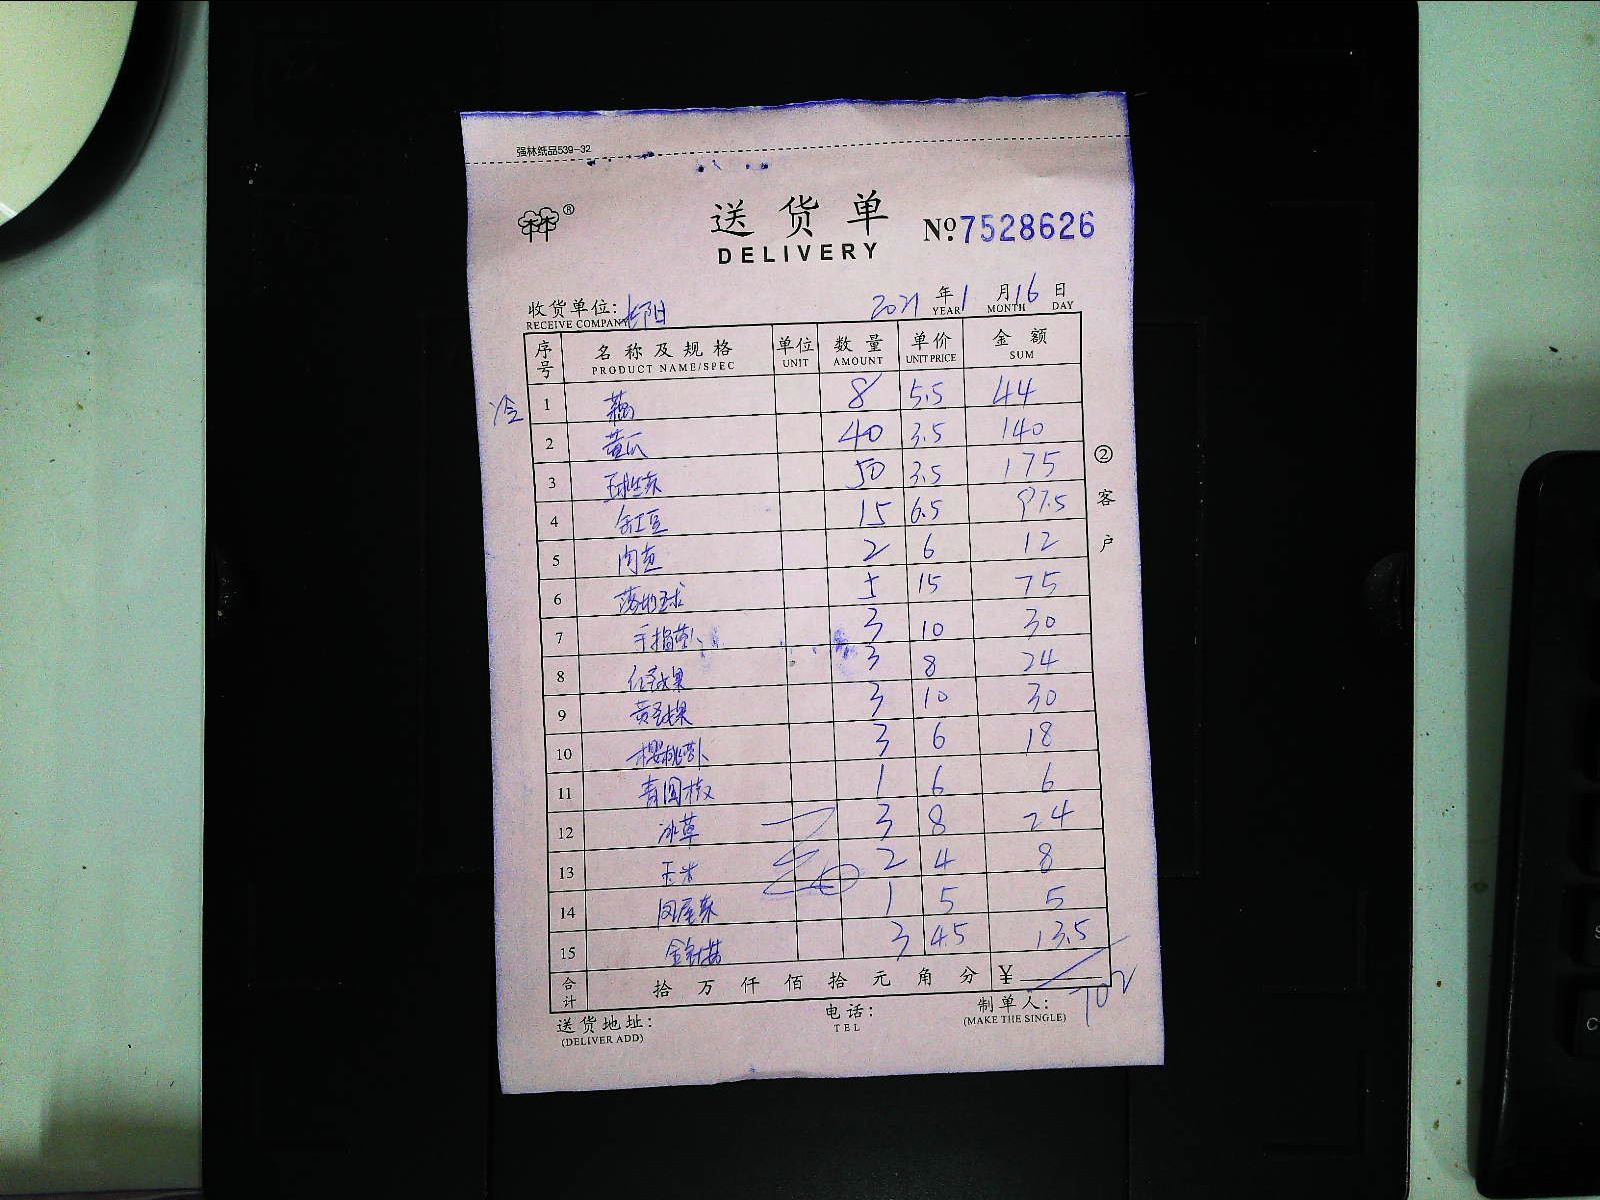 强林纸品539-32
®
送货单
DELIVERY
№7528626
收货单位: 长阳 2021年1月16日
RECEIVE COMPANY YEAR MONTH DAY
序号 名称及规格 单位 数量 单价 金额
PRODUCT NAME/SPEC UNIT AMOUNT UNIT PRICE SUM
冷 1 藕 8 5.5 44
2 黄瓜 40 3.5 140
3 球生菜 50 3.5 175
4 缸豆 15 6.5 97.5
5 肉 2 6 12
6 5 15 75
7 手指 3 10 30
8 果 3 8 24
9 黄圣女果 3 10 30
10 樱桃萝卜 3 6 18
11 青圆椒 1 6 6
12 冰草 3 8 24
13 玉米 2 4 8
14 凤尾菜 1 5 5
15 金针菇 3 4.5 13.5
合计 拾万仟佰拾元角分 ¥ 702
送货地址: 电话: 制单人:
(DELIVER ADD) TEL (MAKE THE SINGLE)
②客户